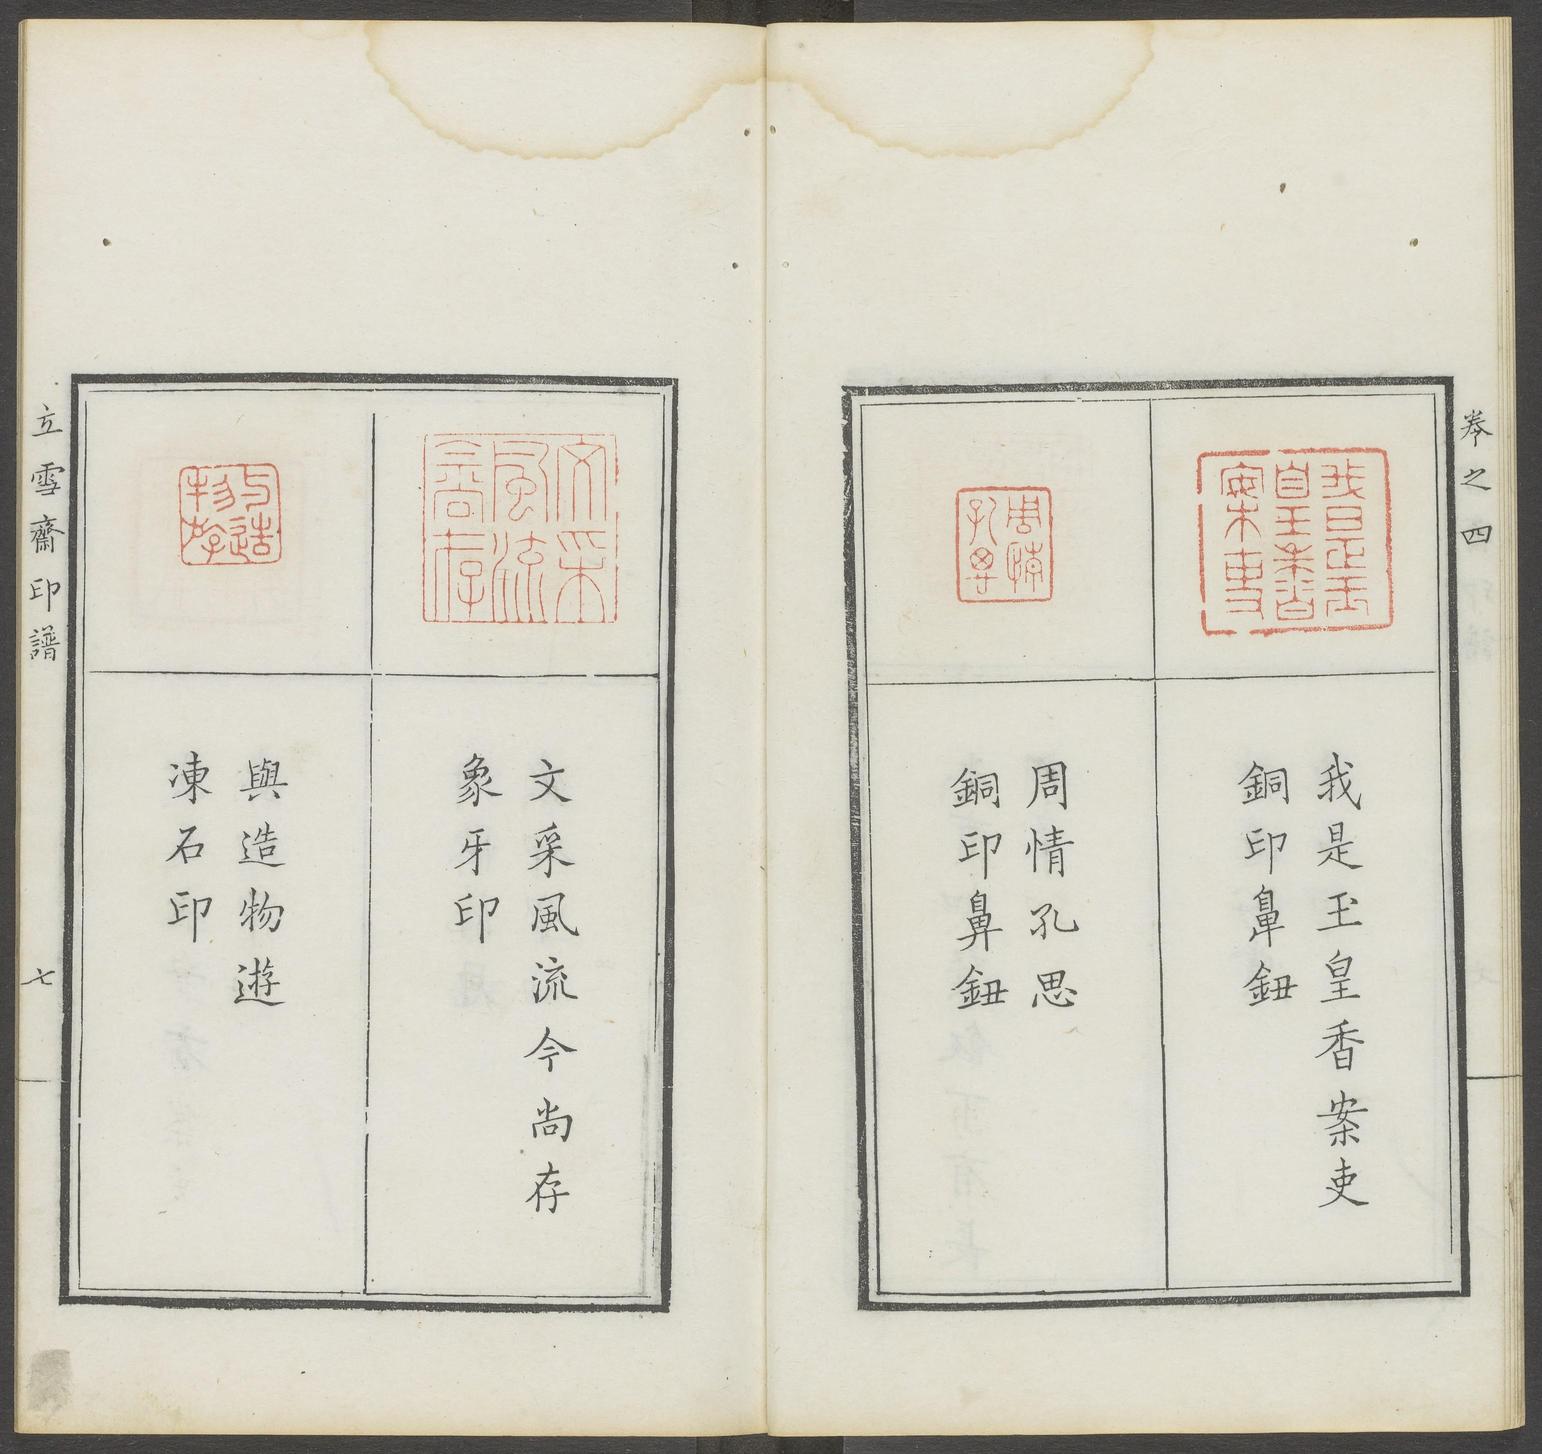 卷之四
我是玉皇香案吏
銅印鼻鈕
周情孔思
銅印鼻鈕
文采風流今尚存
象牙印
與造物遊
凍石印
立雪齋印譜
七